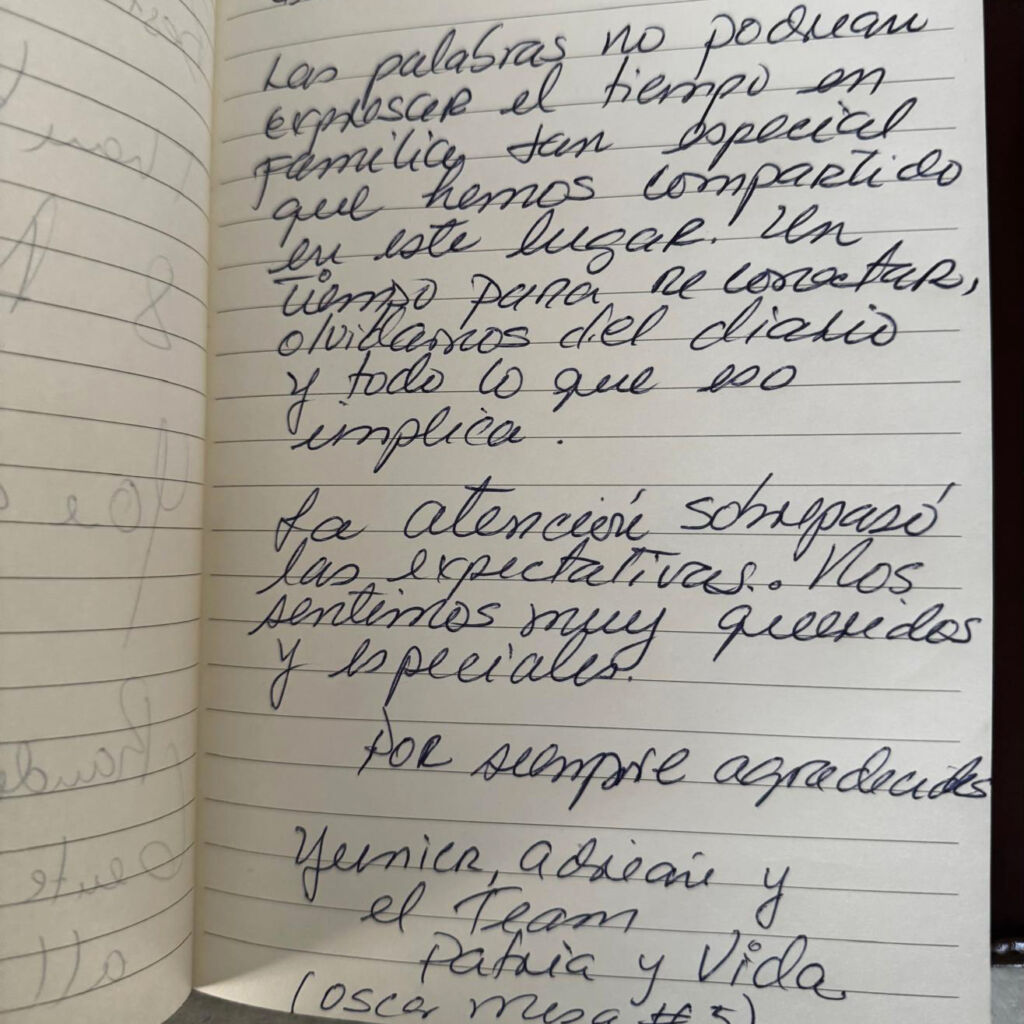 Las palabras no podrían
expresar el tiempo en
familia tan especial
que hemos compartido
en este lugar. Un
tiempo para reconectar,
olvidarnos del diario
y todo lo que eso
implica.
La atención sobrepasó
las expectativas. Nos
sentimos muy queridos
y especiales.
Por siempre agradecidos
Yunier, Adrian y
el Team
Patria y Vida
(Oscar mesa #5)